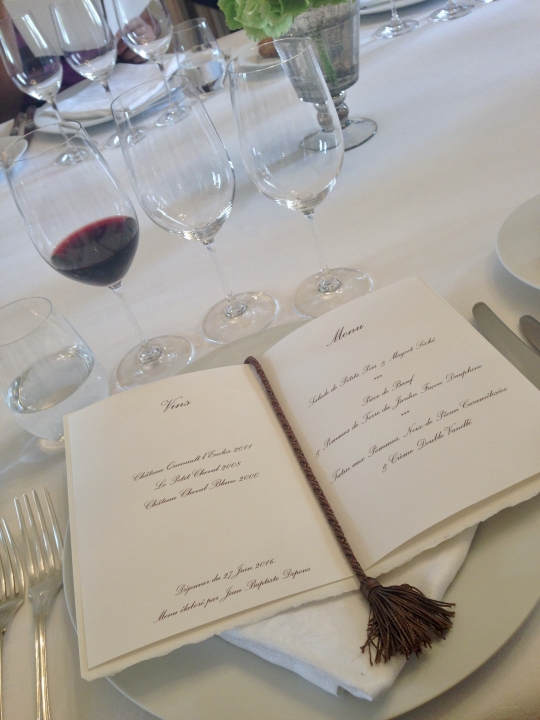 Vins
Château Quinault l'Enclos 2011
Le Petit Cheval 2008
Château Cheval Blanc 2000
Déjeuner du 27 Juin 2016.
Menu élaboré par Jean Baptiste Depons
Menu
Salade de Petits Pois & Magret Séché
***
Pièce de Bœuf
& Pommes de Terre du Jardin Façon Dauphine
***
Tatin aux Pommes, Noix de Pécan Caramélisées
& Crème Double Vanille